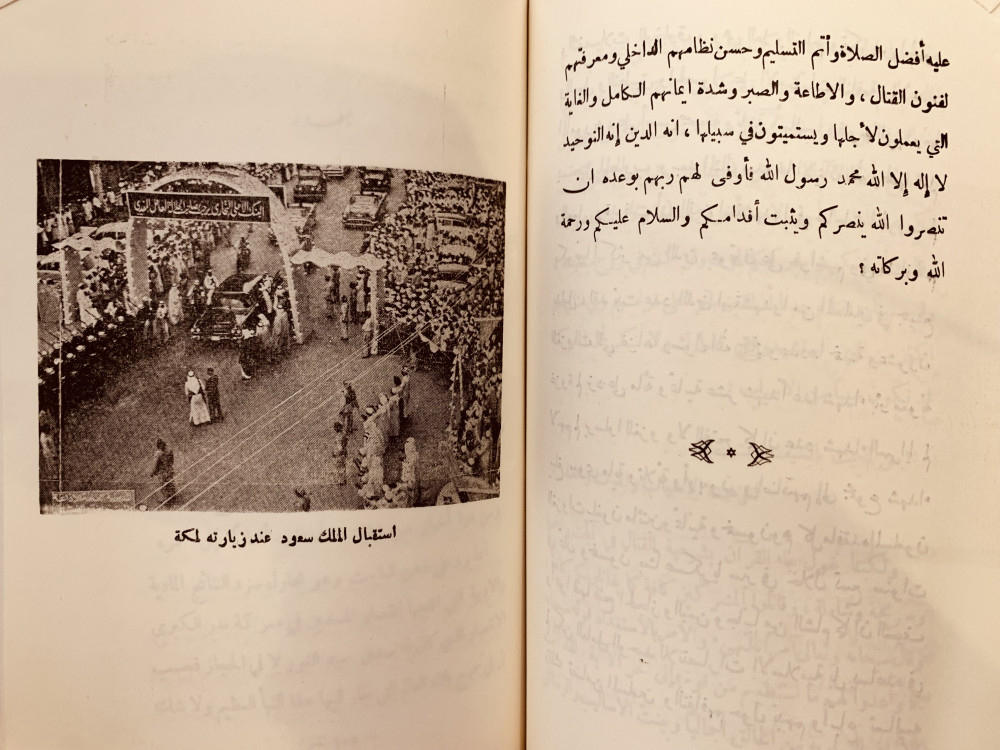 عليه أفضل الصلاة وأتم التسليم وحسن نظامهم الداخلي ومعرفتهم
لفنون القتال ، والاطاعة والصبر وشدة ايمانهم الكامل والغاية
التي يعملون لأجلها ويستميتون في سبيلها ، انه الدين إنه التوحيد
لا إله إلا الله محمد رسول الله فأوفى لهم ربهم بوعده ان
تنصروا الله ينصركم ويثبت أقدامكم والسلام عليكم ورحمة
الله وبركاته ؟
استقبال الملك سعود عند زيارته لمكة